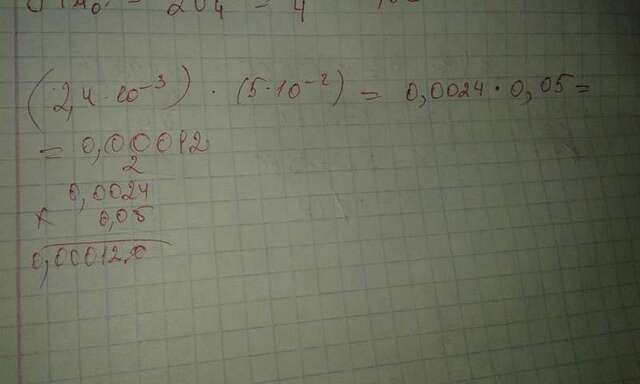 (2,4·10⁻³) · (5·10⁻²) = 0,0024·0,05=
= 0,00012
2
0,0024
× 0,05
0,000120